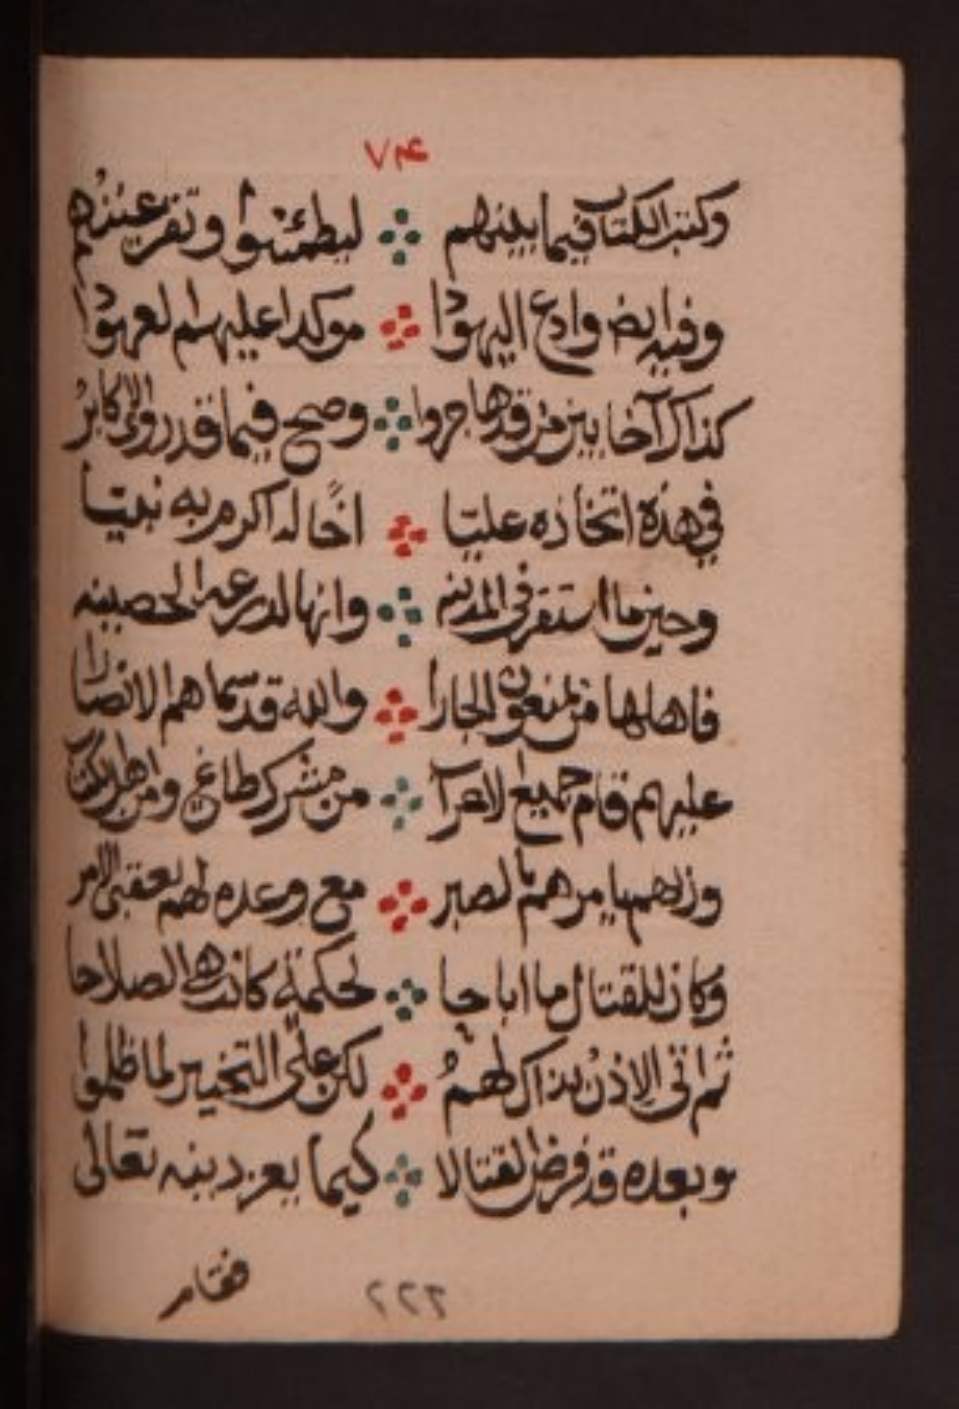 ٧٤
وكتب الكتاب فيما بينهم ليطمئنوا وتقر عينهم
وفيه ايضا وادع اليهودا موكدا عليهم العهودا
كذاك آخا بين من قد هاجروا وصح فيما قد روى الاكابر
في هذه اتخاذه عليا اخًا له اكرم به نعيتا
وحين ما استقر في المدينه وانها لدرعه الحصينه
فاهلها من يمنعون الجارا والله قد سماهم الانصارا
عليهم قام جميع لامرآ من مشرك طاغ ومن اهل
وربهم يامرهم بالصبر مع وعده لهم بعقبى الامر
وكان للقتال ما اباحا لحكمة كانت هي الصلاحا
ثم اتى الاذن بذاك لهمُ لكن على التخيير لما ظلموا
وبعده قد فرض القتالا كيما يعز دينه تعالى
فقام
٢٢٣